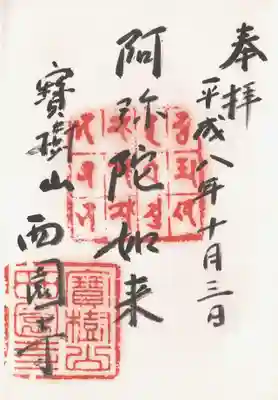 奉拝
平成八年十月三日
阿弥陀如来
寳樹山西園寺